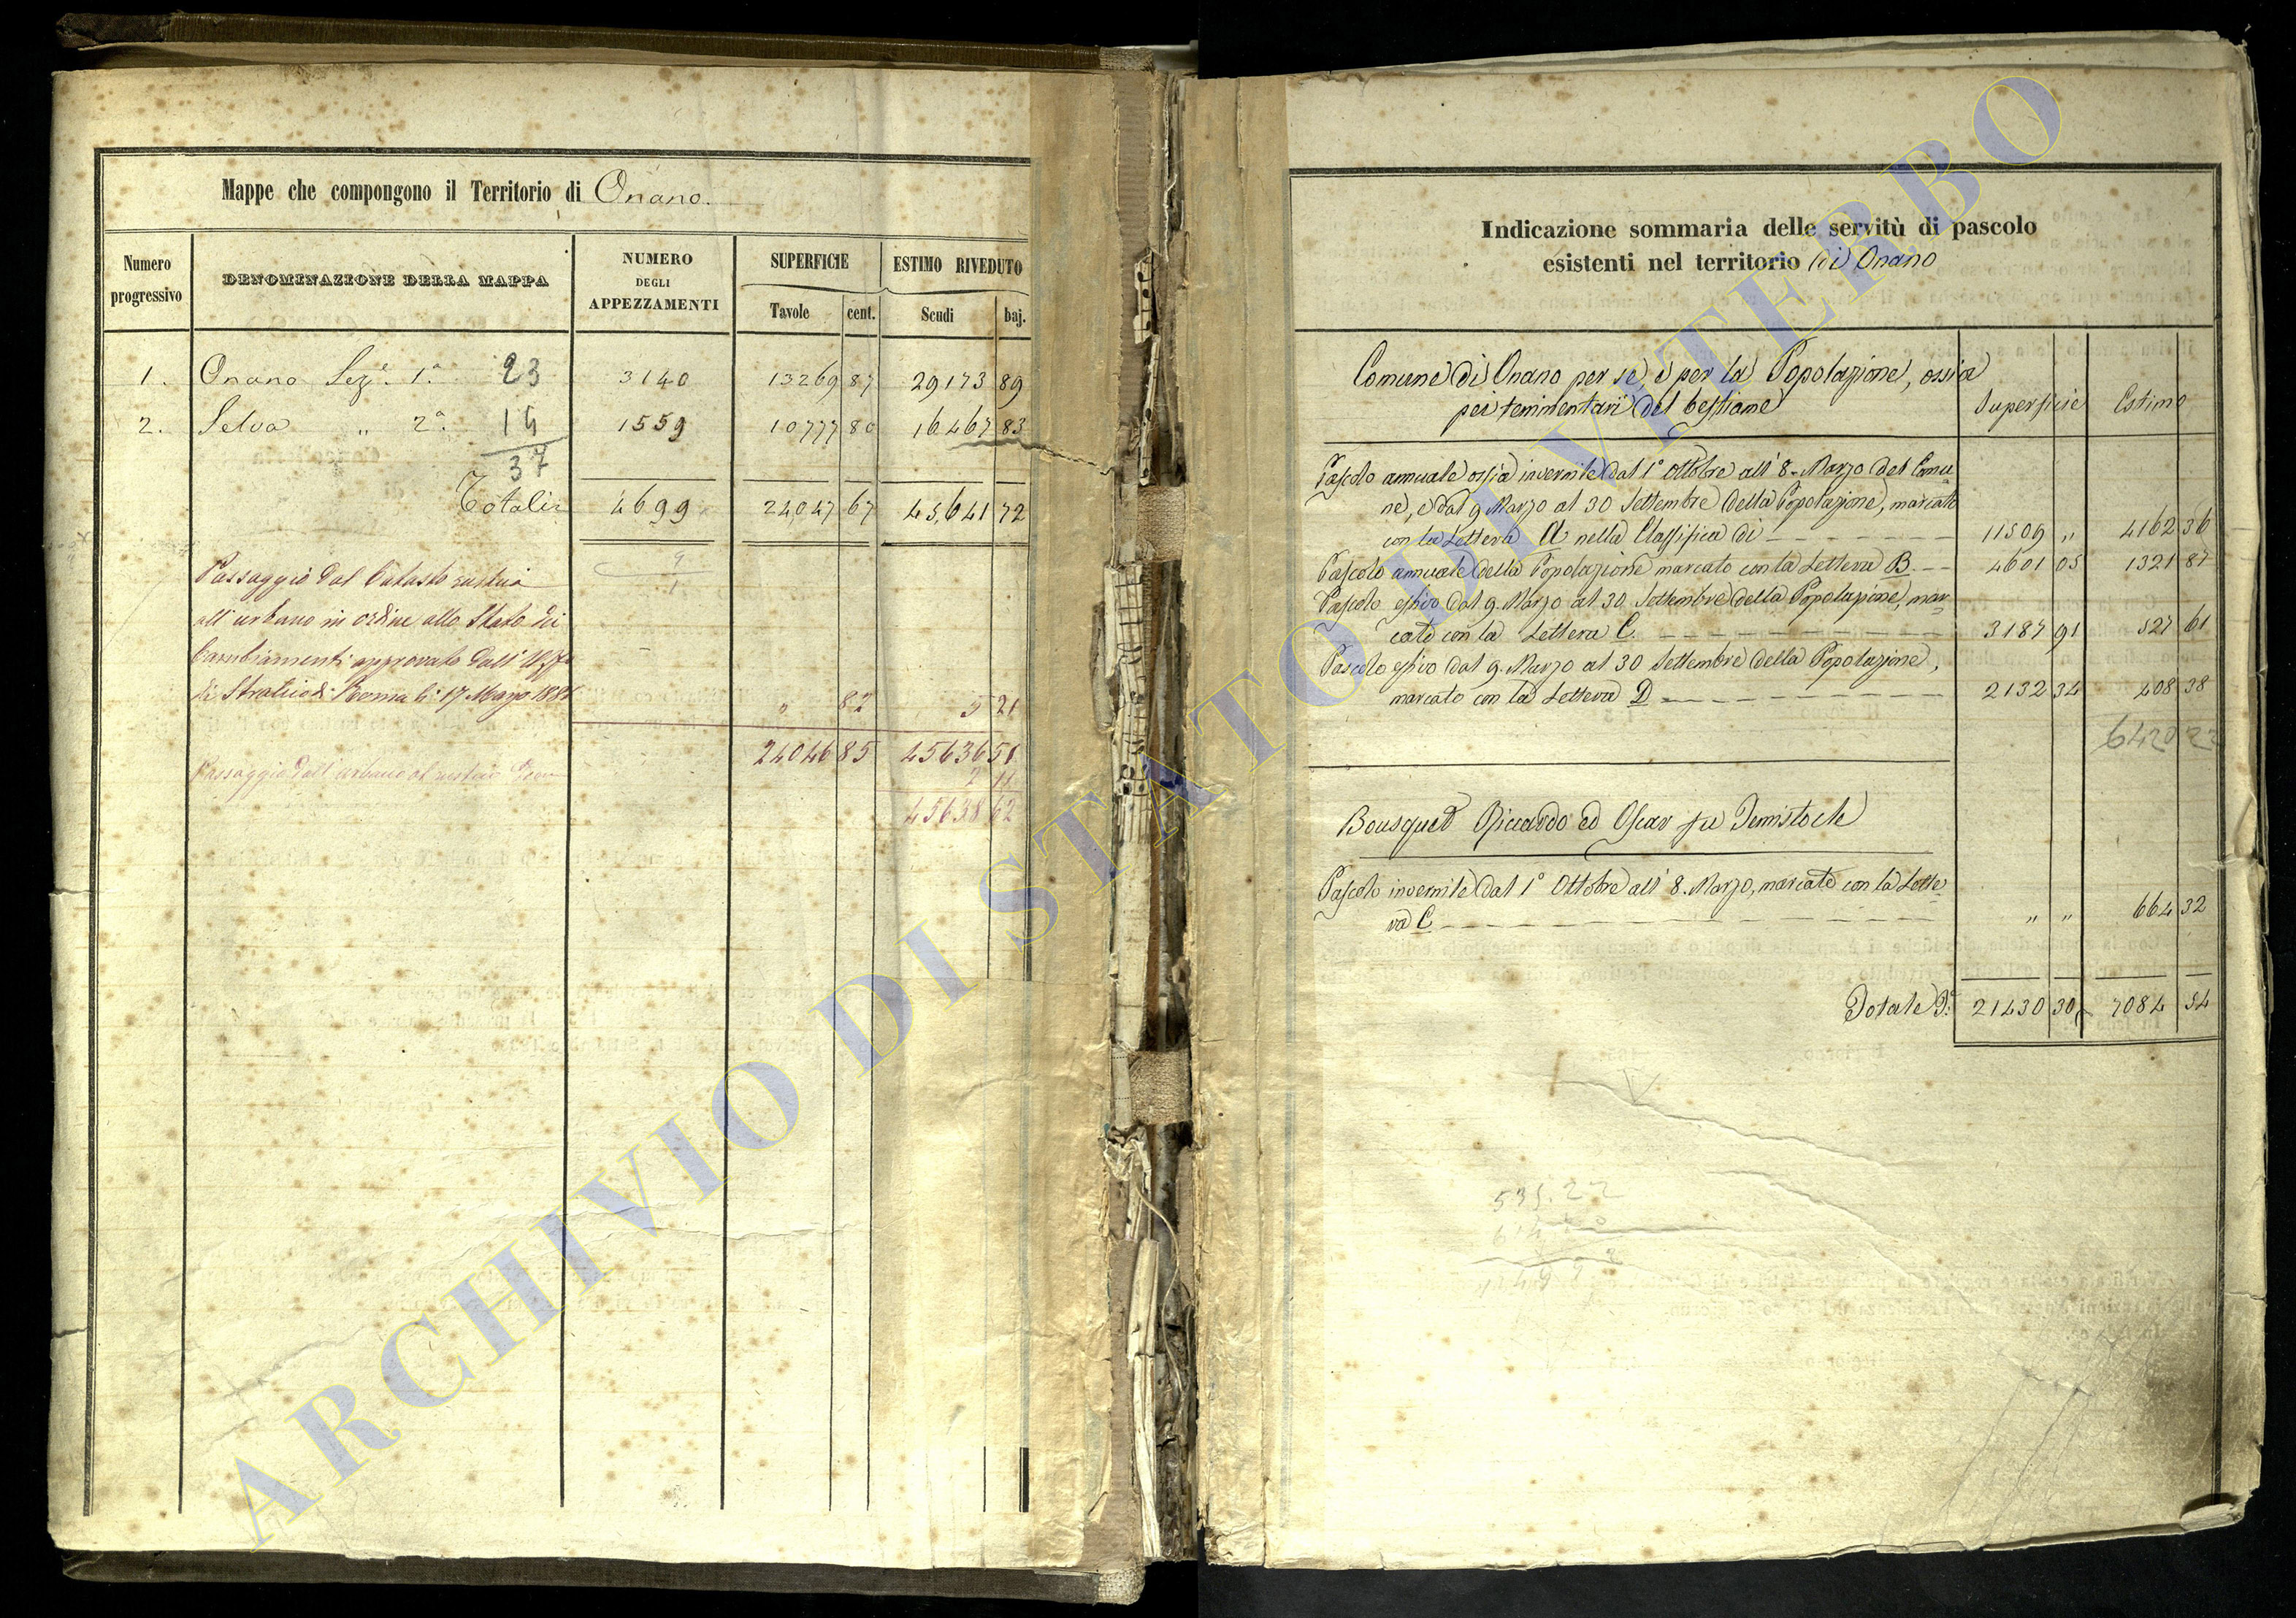 Mappe che compongono il Territorio di Onano.
Numero progressivo
DENOMINAZIONE DELLA MAPPA
NUMERO DEGLI APPEZZAMENTI
SUPERFICIE
ESTIMO RIVEDUTO
Tavole cent. Scudi baj.
1. Onano Sez.e 1.a 23 3140 13269 87 29173 89
2. Selva " 2.a 14 1559 10777 80 16467 83
37
Totali 4699 24,047 67 45,641 72
9
1
Passaggio dal Catasto rustico
all'urbano in ordine allo Stato dei
Cambiamenti approvato dall'
di Roma li 17 Marzo 188
" 82 5 21
24046 85 45636 51
Passaggio dall'urbano al rustico
2 11
45638 62
Indicazione sommaria delle servitù di pascolo
esistenti nel territorio di Onano
Comune di Onano per se, e per la Popolazione, ossia
pei temimentarî del bestiame
Superficie Estimo
Pascolo annuale ossia invernile dal 1° Ottobre all' 8. Marzo del Comu-
ne, e dal 9 Marzo al 30 Settembre della Popolazione, marcato
con la Lettera A nella Classifica di 11509 " 4162 36
Pascolo annuale della Popolazione marcato con la Lettera B. 4601 05 1321 87
Pascolo estivo dal 9. Marzo al 30 Settembre della Popolazione, mar-
cato con la Lettera C. 3187 91 527 61
Pascolo estivo dal 9. Marzo al 30 Settembre della Popolazione,
marcato con la Lettera D 2132 34 408 38
6420 22
Bousquet Riccardo ed Oscar fu Temistocle
Pascolo invernile dal 1° Ottobre all' 8. Marzo, marcato con la Lette-
ra C " " 664 32
Totale 21430 30 7084 54
535.22
ARCHIVIO DI STATO DI VITERBO